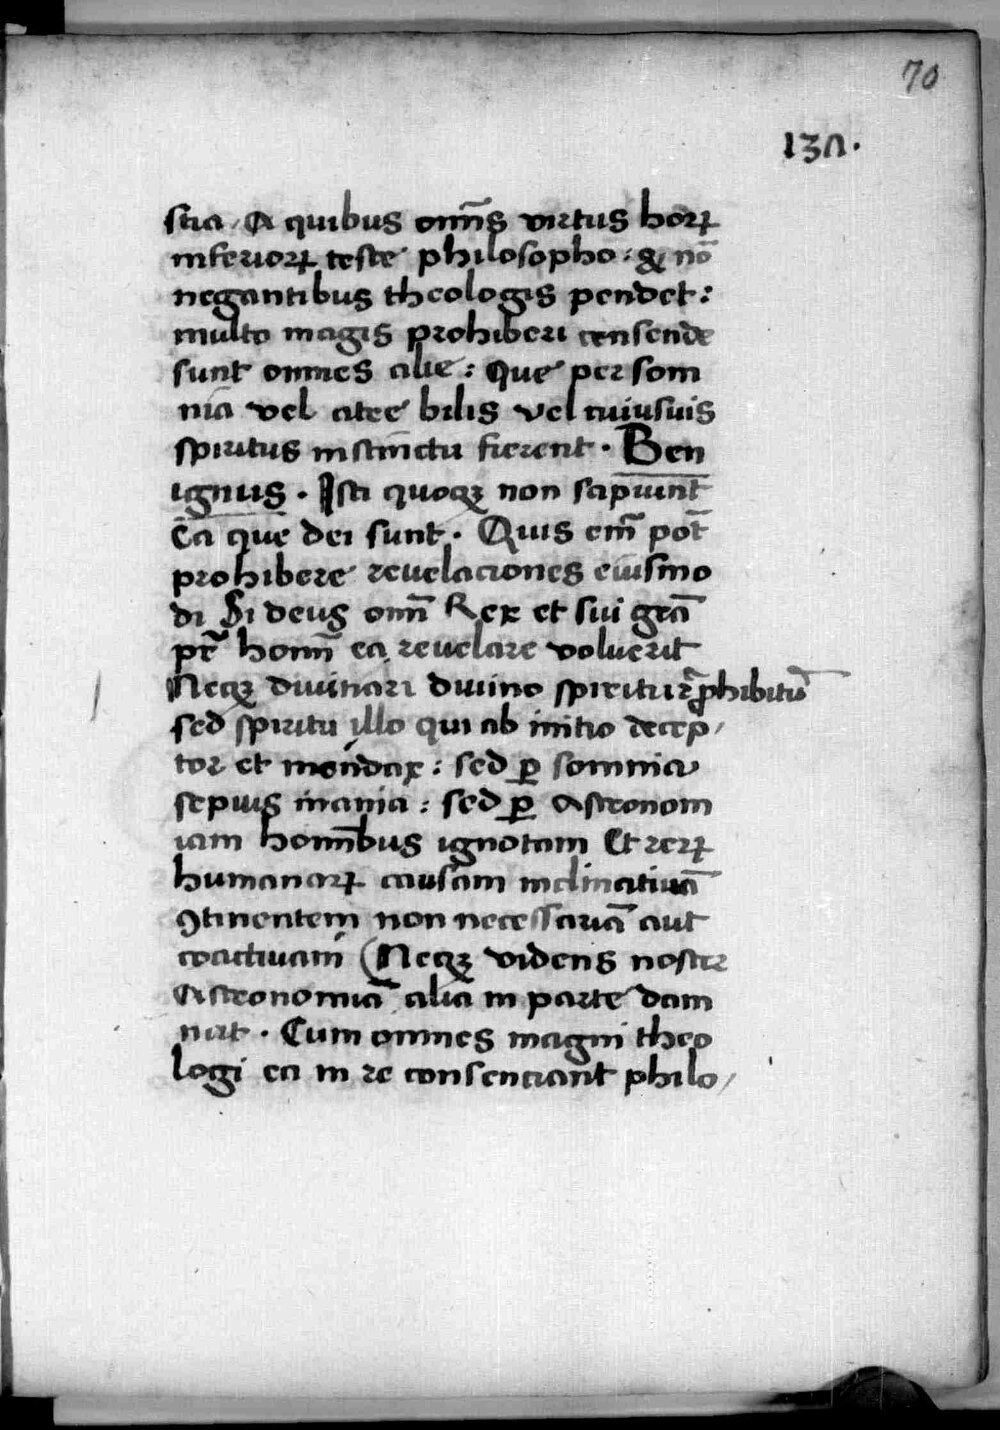 70
137.
stia / A quibus om̄s virtus horꝝ
inferiorꝝ teste philosopho : & nō
negantibus theologis pendet :
multo magis prohiberi censende
sunt omnes alie : Que per som
nia vel atre bilis vel cuiusuis
spiritus instinctu fierent . Ben
ignius . Isti quoqꝫ non sapiunt
Ea que dei sunt . Quis em̄ pōt
prohibere reuelaciones eiusmo
di Si deus om̄ Rex et sui grā
pr̄ homī ea reuelare voluerit
Neqꝫ diuinari diuino spiritu ꝓhibitū
sed spiritu illo qui ab initio decep /
tor et mendax : sed ꝑ somnia
sepius inania : sed ꝑ Astronom
iam homībus ignotam Et rerꝝ
humanarꝝ causam inclinatiuā
ꝯtinentem non necessariā aut
coactiuam ( Neqꝫ videns noster
Astronomiā alia in parte dam
nat . Cum omnes magni theo
logi ea in re consenciant philo /